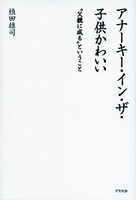 アナーキー・イン・ザ・
子供かわいい
“父親に成る”ということ
植田雄司